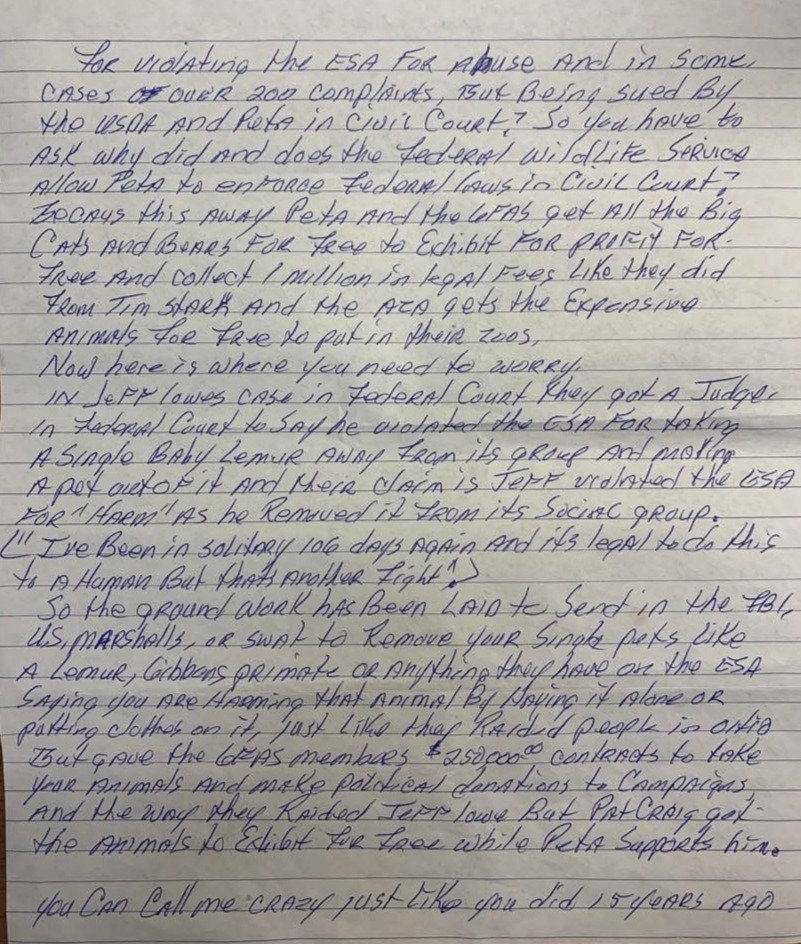 For violating the ESA For Abuse And in some
CASES of over 200 complaints, But Being sued By
the USDA And Peta in Civil Court? So you have to
Ask why did And does the Federal Wildlife Service
Allow Peta to enforce Federal laws in Civil Court?
Becaus this AWAY Peta And the GFAS get All the Big
Cats And Bears For Free to Exhibit For profit For
Free And collect 1 million in legal Fees Like they did
From Tim Stark And the AZA gets the Expensive
Animals For free to put in their zoos,
Now here is where you need to worry.
IN Jeff lowes case in Federal Court they got A Judge
in Federal Court to Say he violated the ESA For taking
A Single Baby Lemur Away From its group And making
A pet out of it And their Claim is Jeff violated the ESA
For "HARM" As he Removed it From its Social group.
(" I've Been in solitary 106 days Again And its legal to do this
to A Human But thats Another Fight".)
So the ground work has Been LAID to Send in the FBI,
U.S. marshalls, or SWAT to Remove your Single pets like
A Lemur, Gibbons primate or Anything they have on the ESA
Saying you Are Harming that Animal By Having it Alone or
putting clothes on it, just like they Raided people in Ohio
But gave the GFAS members $250000.00 contracts to take
your Animals And make political donations to Campaigns,
And the way they Raided Jeff lowe But Pat Craig got
the Animals to Exhibit For Free while Peta Supports him.
you Can Call me crazy just like you did 15 years Ago